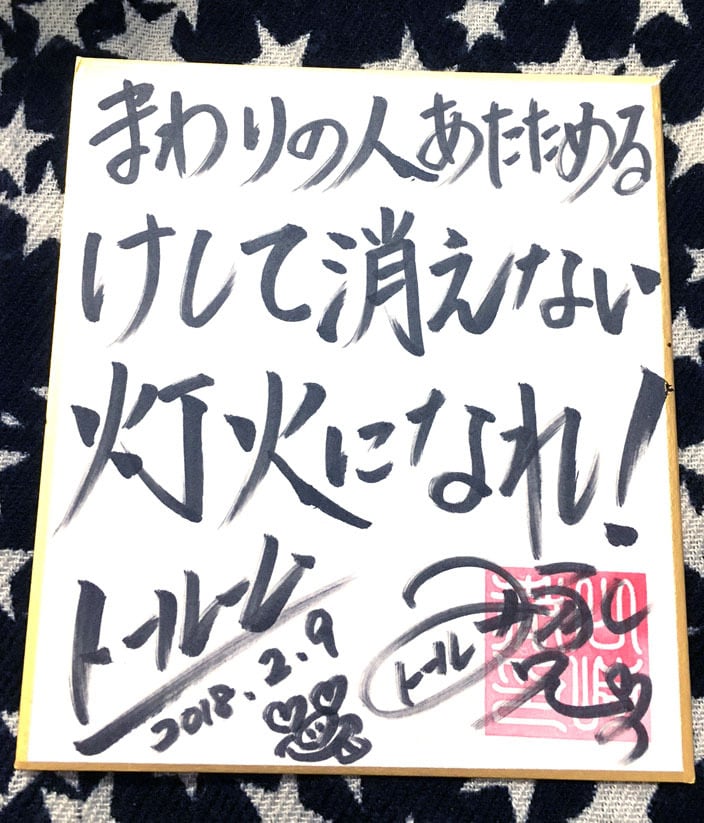 まわりの人あたためる
けして消えない
灯火になれ!
トールし
2018.2.9
トール